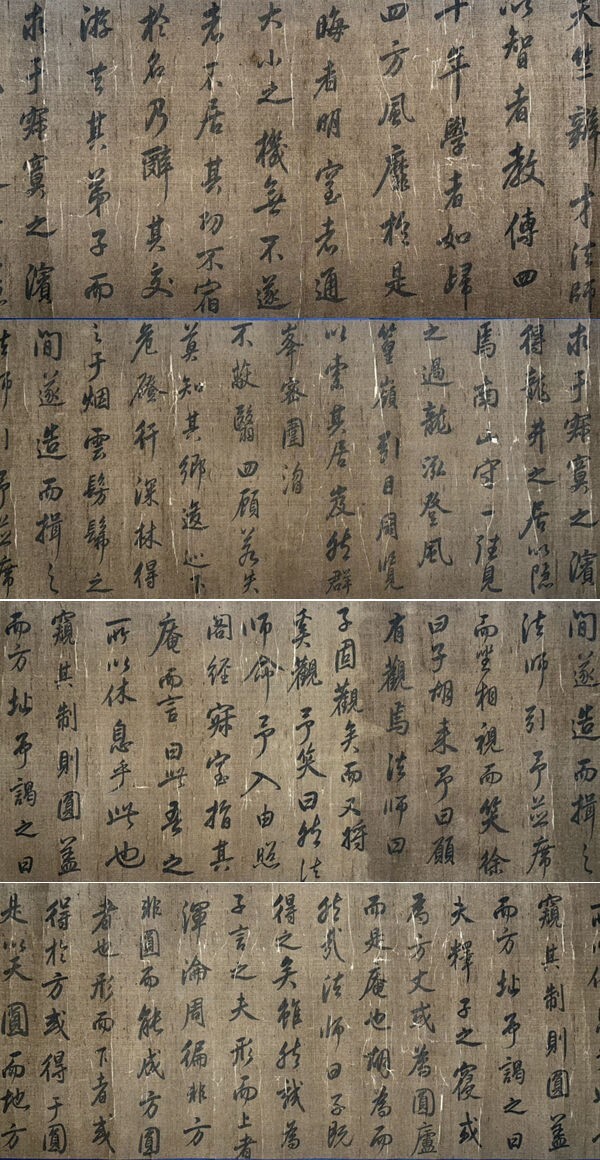 天竺辯才法師
以智者教傳四
十年學者如歸
四方風靡於是
晦者明窒者通
大小之機無不遂
者不居其功不宿
於名乃辭其交
游去其弟子而
求于寂寞之濱
求于寂寞之濱
得龍井之居以隱
焉南山守一往見
之過龍泓登風
篁嶺引目周覽
以索其居岌然群
峯密圍溜
不蔽翳四顧若失
莫知其鄉逡巡下
危磴行深林得
之于烟雲髣髴之
間遂造而揖之
法師引予並席
間遂造而揖之
法師引予並席
而坐相視而笑徐
曰子胡來予曰願
有觀焉法師曰
子固觀矣而又將
奚觀予笑曰然法
師命予入由照
閣經寢室指其
庵而言曰此吾之
所以休息乎此也
窺其制則圓蓋
而方址予謁之曰
窺其制則圓蓋
而方址予謁之曰
夫釋子之寢或
為方丈或為圓廬
而是庵也胡為而
然哉法師曰子既
得之矣雖然試為
子言之夫形而上者
渾淪周徧非方
非圓而能成方圓
者也形而下者或
得於方或得于圓
是以天圓而地方